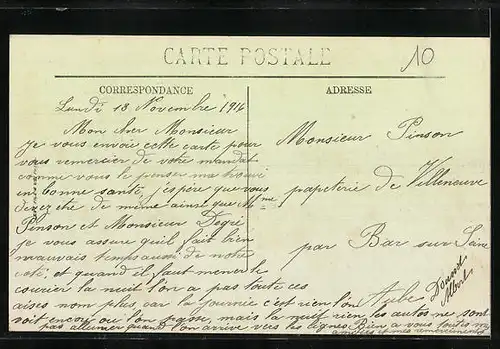 CARTE POSTALE
10
CORRESPONDANCE
ADRESSE
Lundi 18 Novembre 1914
Mon cher Monsieur
Je vous envoie cette carte pour
vous remercier de votre mandat
comme vous le penser ma trouvé
en bonne santé, j'espère que vous
devez etre de même ainsi que Mme
Pinson et Monsieur Degré
je vous assure quil fait bien
mauvais temps aussi de notre
coté, et quand il faut mener le
courier la nuit l'on a pas toute ces
aises nom plus, car la journée c'est rien l'on
voit encore ou l'on passe, mais la nuit rien les autos ne sont
pas allumer quand l'on arrive vers les lignes. Bien a vous toutes mes
amities et mes
Monsieur Pinson
papeterie de Villeneuve
par Bar sur Seine
Aube
Albert